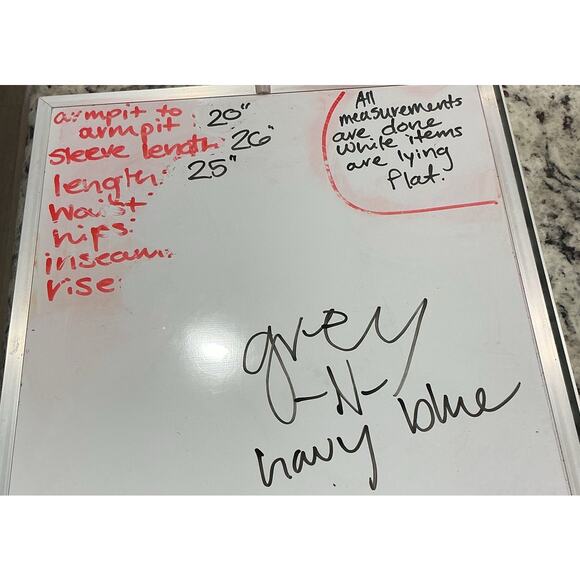 armpit to
armpit: 20"
sleeve length: 26"
length: 25"
waist:
hips:
inseam:
rise:
All
measurements
are done
while items
are lying
flat.
grey
-N-
navy blue